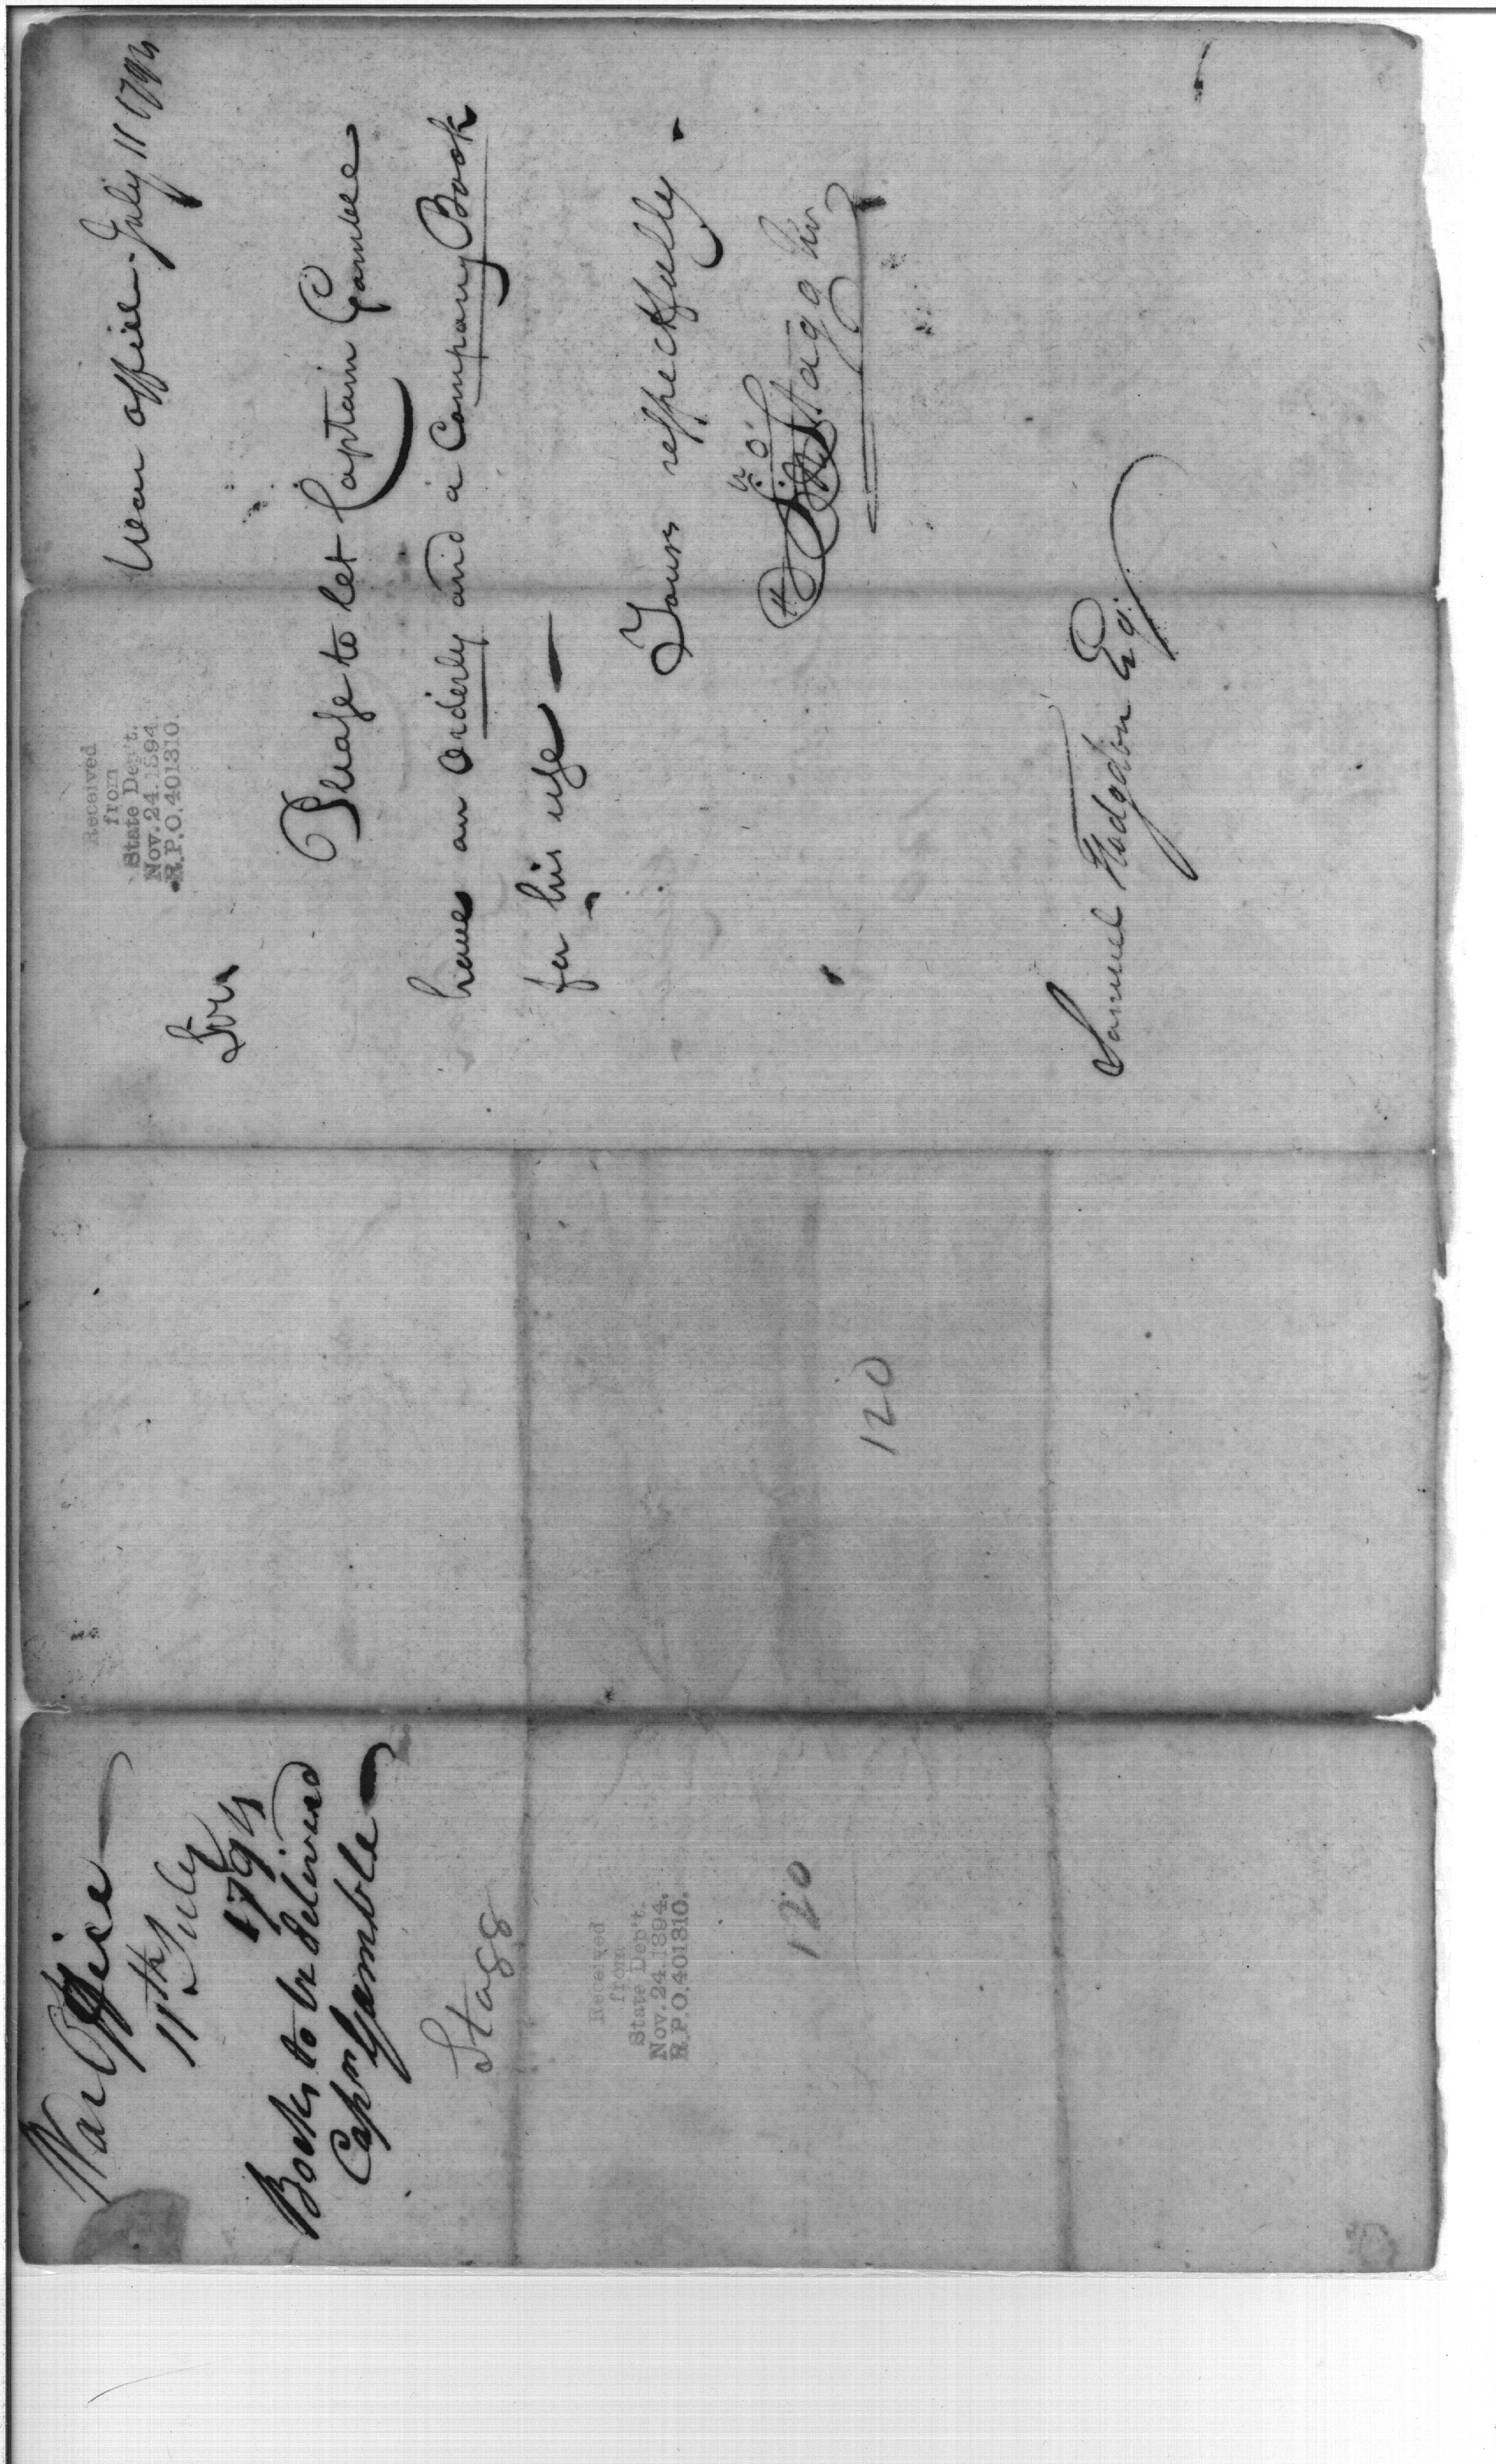 War office. July 11 1794
Received
from
State Dep't.
Nov. 24. 1894.
R.P.O. 401310.
Sir
Please to let Captain Gamble
have an Orderly and a Company Book
for his use —
Yours respectfully.
Jno Stagg Jun
Samuel Hodgdon Esq.
120
War Office
11th July
1794
Books to be delivered
Capn Gamble
Stagg
Received
from
State Dep't.
Nov. 24. 1894.
R.P.O. 401310.
120